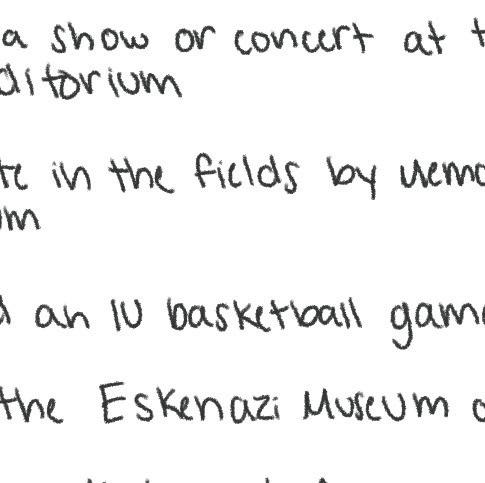 a show or concert at t
ditorium
te in the fields by Memo
um
d an IU basketball game
the Eskenazi Museum o